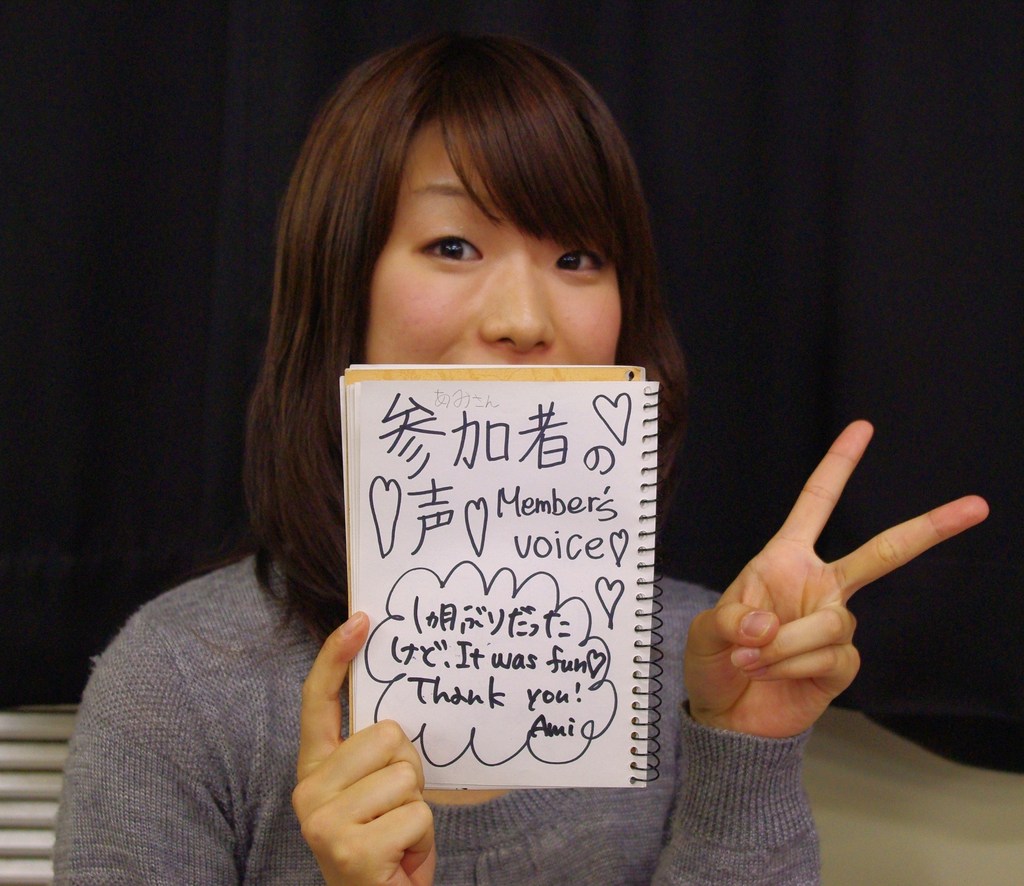 あみさん
参加者の
声 Member's
voice
1ヵ月ぶりだった
けど、It was fun
Thank you!
Ami